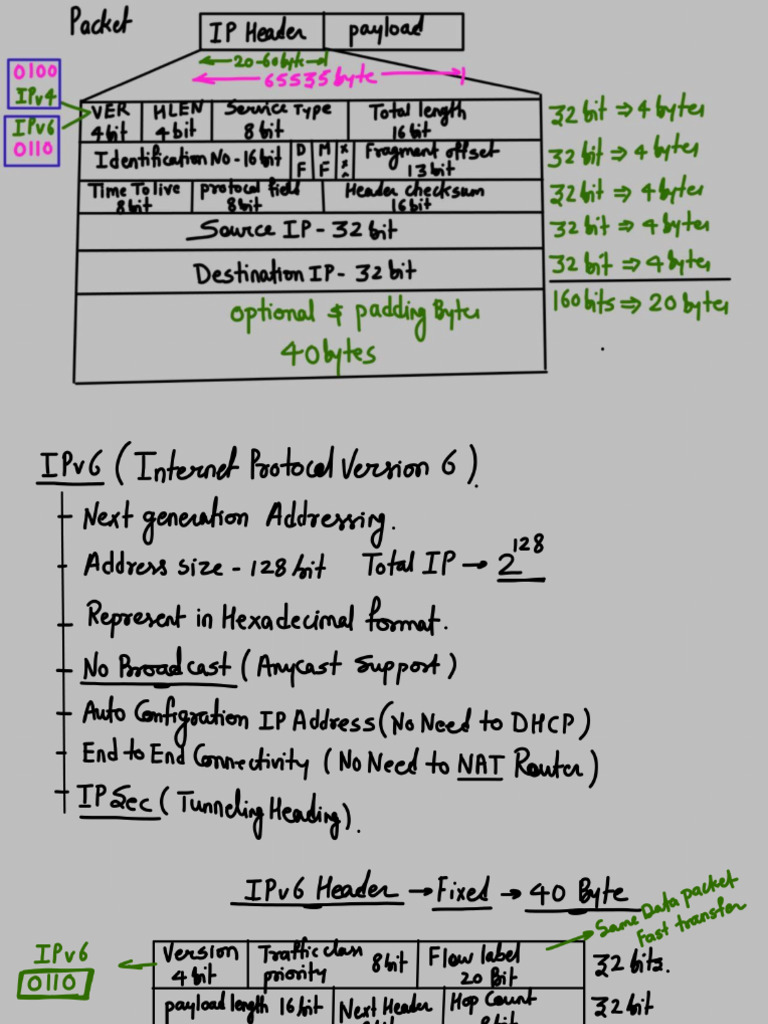 Packet
IP Header payload
20-60byte
65535byte
0100
IPv4
IPv6
0110
VER 4bit HLEN 4bit Service Type 8bit Total length 16bit 32bit ⇒ 4 bytes
Identification No-16bit DF MF Fragment offset 13bit 32bit ⇒ 4 bytes
Time To live 8bit protocol field 8bit Header checksum 16bit 32bit ⇒ 4 bytes
Source IP - 32 bit 32bit ⇒ 4 bytes
Destination IP - 32 bit 32bit ⇒ 4 bytes
optional & padding Byte 160bits ⇒ 20 bytes
40bytes
IPv6 (Internet Protocol Version 6).
Next generation Addressing.
Address size - 128 bit Total IP → 2^128
Represent in Hexadecimal format.
No Broadcast (Anycast Support)
Auto Configration IP Address (No Need to DHCP)
End to End Connectivity (No Need to NAT Router)
IPSec (Tunneling Heading).
IPv6 Header → Fixed → 40 Byte
Same Data packet
Fast transfer
IPv6
0110
Version 4bit Traffic class priority 8bit Flow label 20 Bit 32bits.
payload length 16bit Next Header Hop Count 32bit